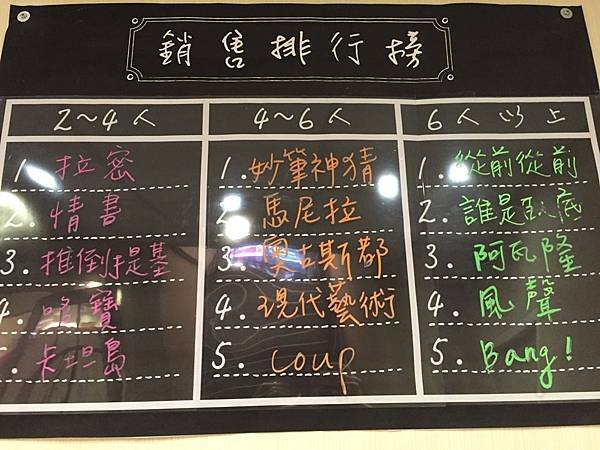 銷售排行榜
2~4人
4~6人
6人以上
1. 拉密
2. 情書
3. 推倒提基
4. 嗒寶
5. 卡坦島
1. 妙筆神猜
2. 馬尼拉
3. 奧古斯都
4. 現代藝術
5. coup
1. 從前從前
2. 誰是臥底
3. 阿瓦隆
4. 風聲
5. Bang!